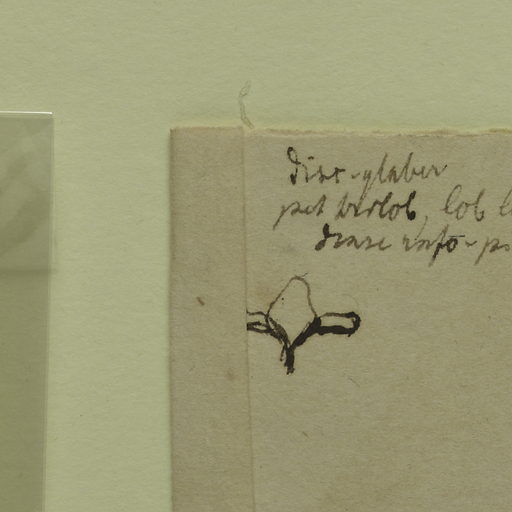 disc-glaber
pet bislob, lob l
dense rufo-p